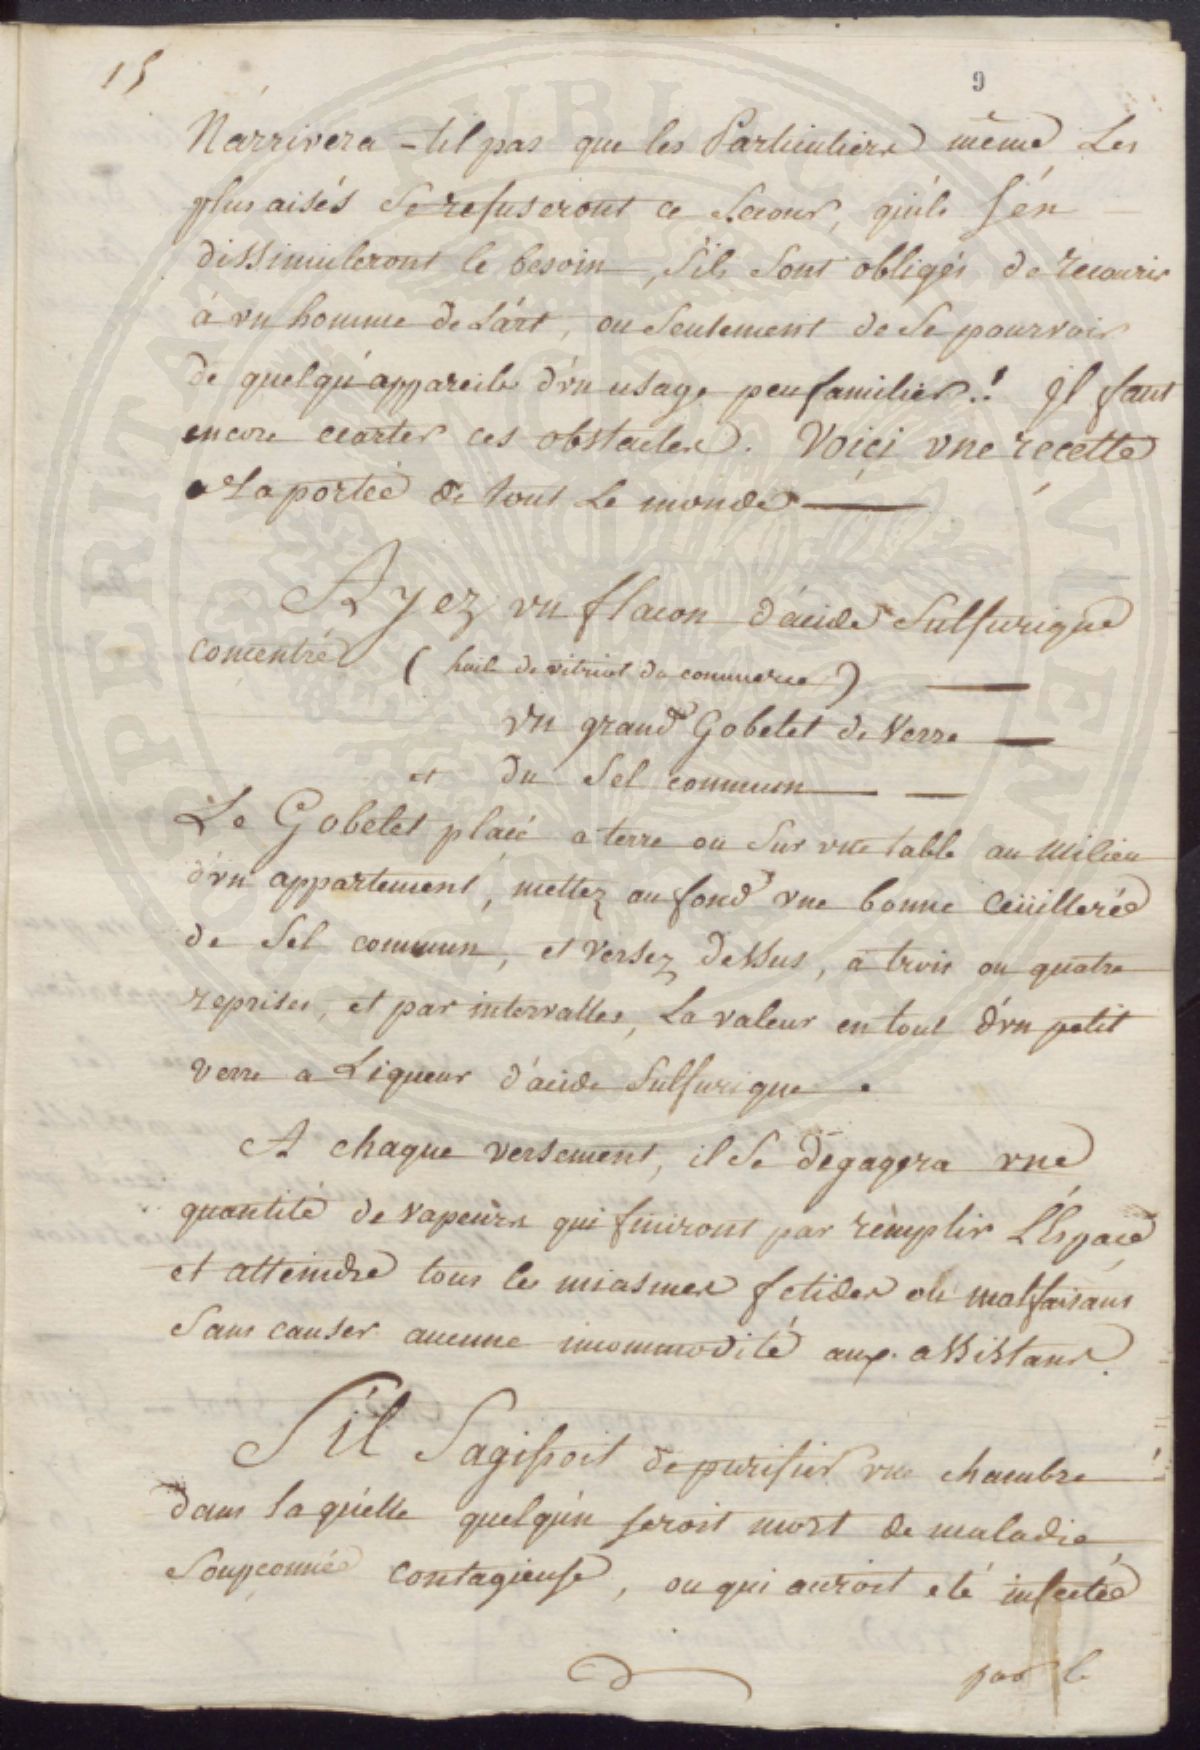 15
9
N'arrivera-til pas que les Particuliers même Les
plus aisés Se refuseront ce Secour, qu'ils S'én
dissimuleront le besoin, S'ils Sont obligés de recourir
á vn homme de L'árt, ou Seulement de Se pourvoir
de quelqu'appareils d'vn usage peu familier.! Il faut
encore ecarter ces obstacles. Voiçi vne recette
a La porteé de tout Le monde
Ayez vn flacon d'acide Sulfurique
concentré (huile de vitriol du commerce)
vn grand Gobelet de Verre
et du Sel commun
Le Gobelet placé a terre ou Sur vne table au milieu
d'vn appartement, mettez au fond vne bonne Ceüilleréé
de Sel commun, et Versez Dessus, a trois ou quatre
reprises, et par intervalles, La valeur en tout d'vn petit
verre a Liqueur d'acide Sulfurique.
A chaque versement, il Se dégagera vne
quantité de vapeurs qui finiront par remplir L'Espace
et atteindre tous les miasmes fetides ou malfaisans
Sans causer aucune incommodité aux assistans.
S'il Sagissoit de purifier vne chambre
dans laquelle quelqu'un seroit mort de maladie
Soupçonnée contagieuse, ou qui auroit eté infectée
par le
PUBLICAE
SALVTI
PROSPERITATI